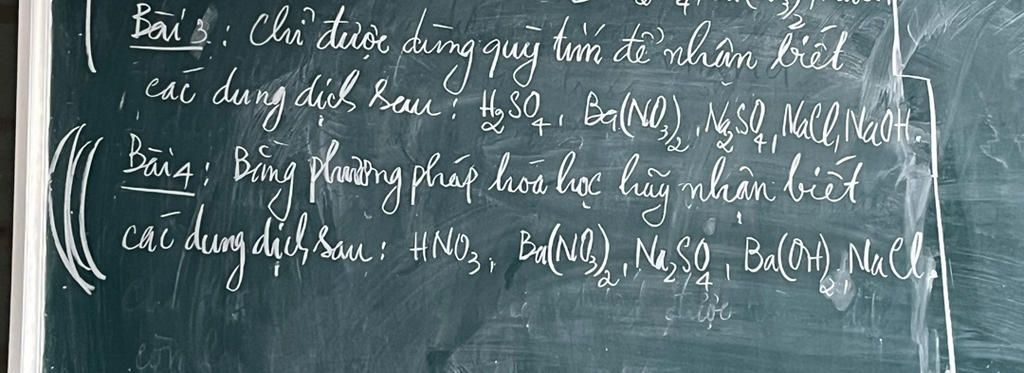 Bài 3: Chỉ được dùng quỳ tím để nhận biết
các dung dịch sau: H₂SO₄, Ba(NO₃)₂, Na₂SO₄, NaCl, NaOH.
Bài 4: Bằng phương pháp hoá học hãy nhận biết
các dung dịch sau: HNO₃, Ba(NO₃)₂, Na₂SO₄, Ba(OH)₂, NaCl.